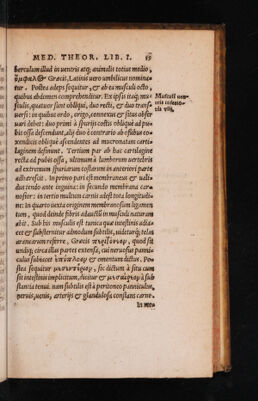 MED. THEOR. LIB. I. 15
berculum illud in ventris atq; animalis totius medio,
ὀμφαλὸς Græcis, Latinis vero umbilicus nomina-
tur. Postea adeps sequitur, & ab ea musculi octo,
quibus abdomen comprehenditur. Ex ipsis itaq; mu-
sculis, quatuor sunt obliqui, duo recti, & duo transf-
versi: in quibus ordo, origo, connexus & situs obser-
vari debet: duo primi à sparsis oriundi, oblique ad pu-
bis ossa descendunt, alij duo è contrario ab ossibus co-
xendicis oblique ascendentes ad mucronatam carti-
laginem desinunt. Tertium par ab hac cartilagine
recta ad pubis ossa, ultimum à lumborum vertebris
ad extremum spuriarum costarum in anteriori parte
adhærescit. In primo pari est membranosus & nudus
tendo ante inguina: in secundo membrana car-
nosa: in tertio multum carnis adest tota longitudi-
ne: in quarto tanta originem membranosam sequun-
tum, quod deinde fibris adauctis in musculi naturam
abit. Sub his musculis est tunica quæ intestinis adia-
cet & substernitur admodum subtilis, videturq; telam
arancarum referre, Græcis
circa illas partes extensa, cui rursus panni-
culus subiacet & omentum dictus. Po-
stea sequitur μεσεντέριον, sic dictum à situ cum
sit intestinis implicitum, dicitur & ab sub
stantia tenui. nam subtilis est à peritoneo panniculus,
nervis, venis, arterijs & glandulosa constans carne.
In me-
Musculi ven-